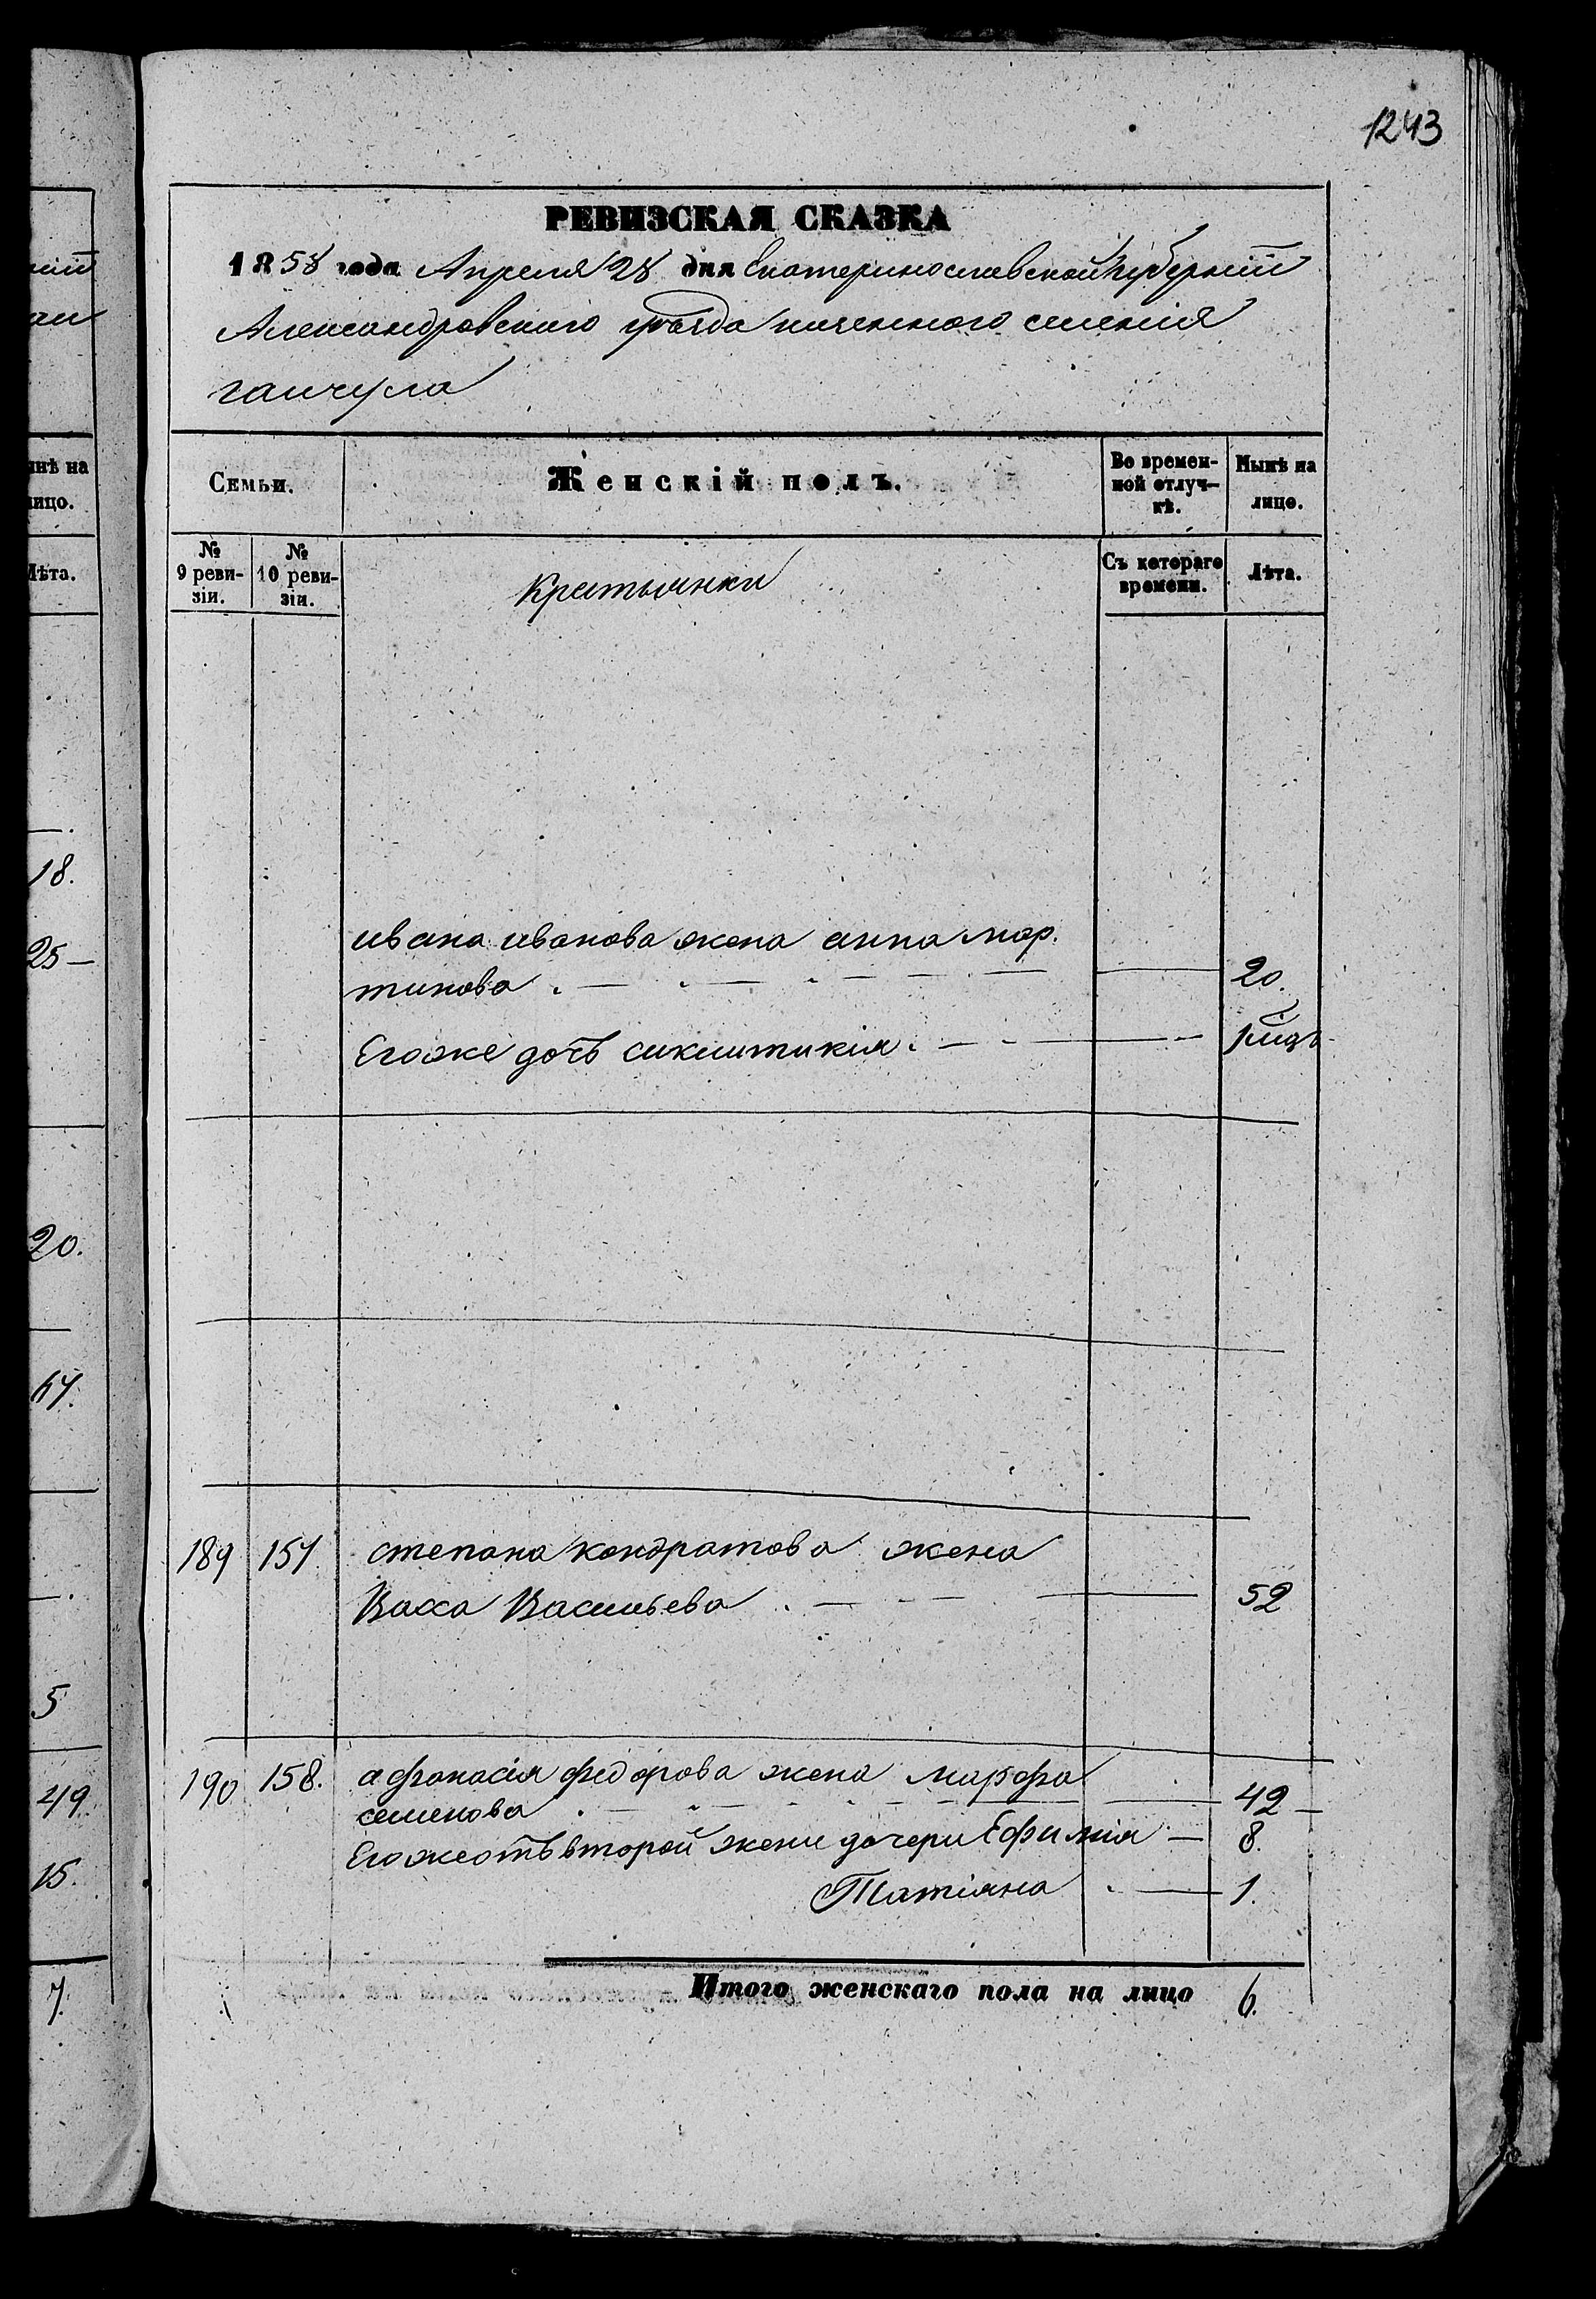 1243
РЕВИЗСКАЯ СКАЗКА
1858 года Апреля 28 дня Екатеринославской Губернии
Александровского уѣзда казенного селения
гаичула
Семьи.
Женскій полъ.
Во времен-
ной отлуч-
кѣ.
Нынѣ на
лицо.
№
9 реви-
зіи.
№
10 реви-
зіи.
Крестьянки
Съ котораго
времени.
Лѣта.
ивана иванова жена анна мар.
тинова 20.
Егоже дочь
189 157 степана кондратова жена
Васса Васильева 52
190 158. афонасія федорова жена марфа
семенова 42
Егоже отъ второй жены дочери Ефимия 8.
Татіяна 1.
Итого женскаго пола на лицо 6.
нѣ на
ицо.
Лѣта.
18.
25
20.
5
49
15.
7.